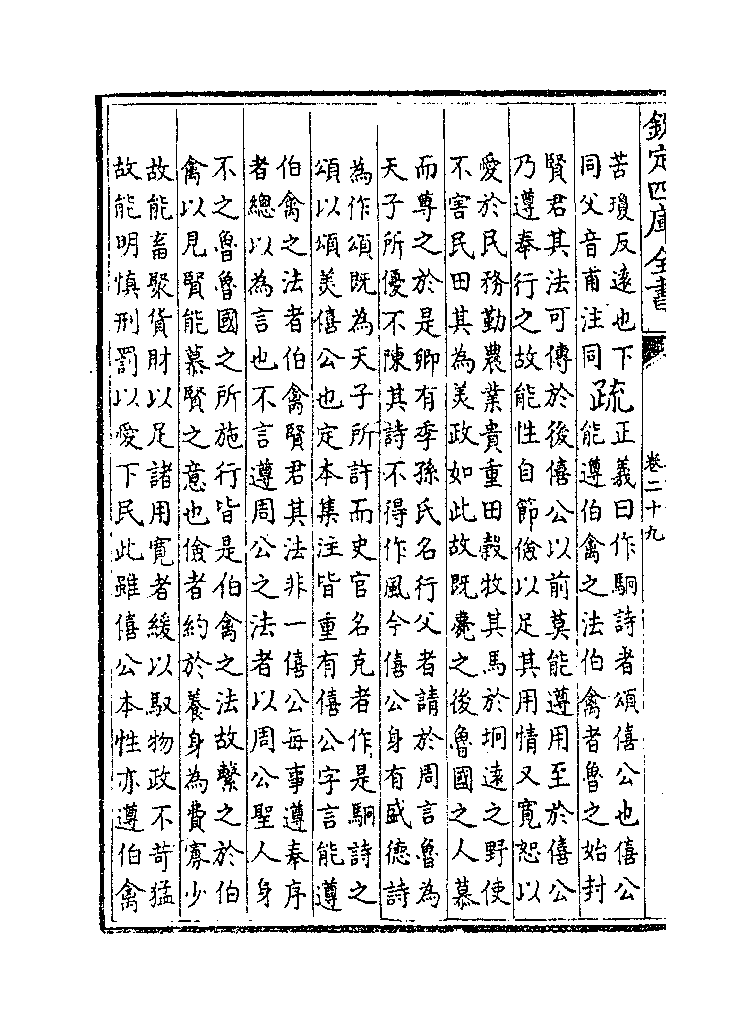 欽定四庫全書
卷二十九
苦瓊反逺也下
同父音甫注同
疏
正義曰作駉詩者頌僖公也僖公
能遵伯禽之法伯禽者魯之始封
賢君其法可傳於後僖公以前莫能遵用至於僖公
乃遵奉行之故能性自節儉以足其用情又寛恕以
愛於民務勤農業貴重田榖牧其馬於坰逺之野使
不害民田其為美政如此故既薨之後魯國之人慕
而尊之於是卿有季孫氏名行父者請於周言魯為
天子所優不陳其詩不得作風今僖公身有盛德詩
為作頌既為天子所許而史官名克者作是駉詩之
頌以頌美僖公也定本集注皆重有僖公字言能遵
伯禽之法者伯禽賢君其法非一僖公每事遵奉序
者總以為言也不言遵周公之法者以周公聖人身
不之魯魯國之所施行皆是伯禽之法故繫之於伯
禽以見賢能慕賢之意也儉者約於養身為費寡少
故能畜聚貨財以足諸用寛者緩以馭物政不苛猛
故能明慎刑罰以愛下民此雖僖公本性亦遵伯禽